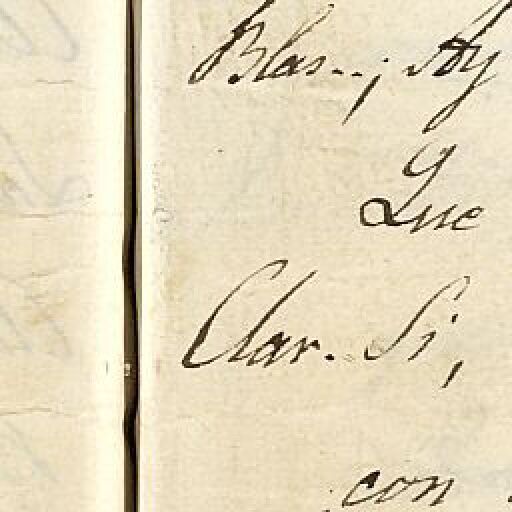 Blas..; Ay
Que
Clar. Si,
con